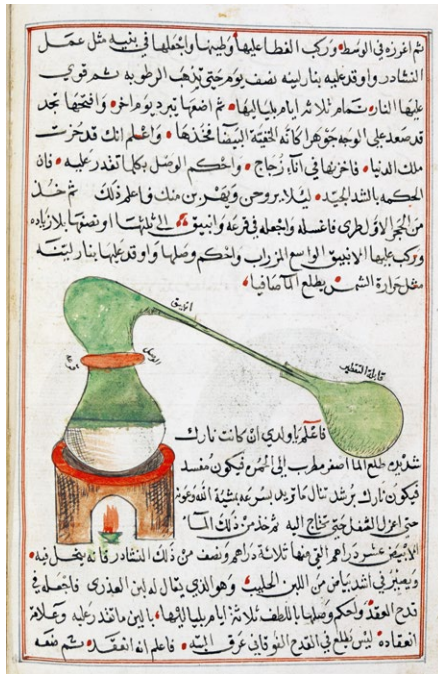 ثم اغرزه في الوسط وركب الغطا عليها وطينها واجعلها في بنيه مثل عمل
النشادر واوقد عليه بنار لينه نصف يوم حتى يذهب الرطوبه ثم قوي
عليها النار تمام ثلاثه ايام بلياليها ثم اضعها تبرد يوم اخر وافتحها تجد
قد صعد على الوجه جوهرا كانه البيضا فخذها واعلم انك قد حزت
ملك الدنيا فاخزنها في اناء زجاج واحكم الوصل بكلما تقدر عليه فان
الحكمه بالشد الجيد ليلا يروحن ويهربن منك فاعلم ذلك ثم خذ
من الحجر الاول طرى فاغسله واجعله في قرعه وانبيق الى ثلثها او نصفها بلا زياده
وركب عليها الانبيق الواسع المزراب واحكم وصلها واوقد عليها بنار لينه
مثل حرارة الشمس يطلع الما صافيا
انبيق
الوصل
قرعه
قابلة التقطير
فاعلم يا ولدي ان كانت نارك
شديده طلع الما اصفر الى الحمره فيكون مفسد
فيكون نارك برشد تنال ما تريد بسرعه بمشية الله وعونه
حتى تحتاج اليه ثم خذ من ذلك الما
عشر دراهم القى عليها ثلاثة دراهم ونصف من ذلك النشادر فانه ينحل فيه
ويصير في اشد بياض من اللبن الحليب وهو الذي يقال له لبن العذرى فاجعله في
قدح العقد واحكم وصلها باللطف ثلاثة ايام بلياليها بالين ما تقدر عليه وعلامة
انعقاده ليس يطلع في القدح الفوقاني عرق البته فاعلم انه انعقد ثم ضعه